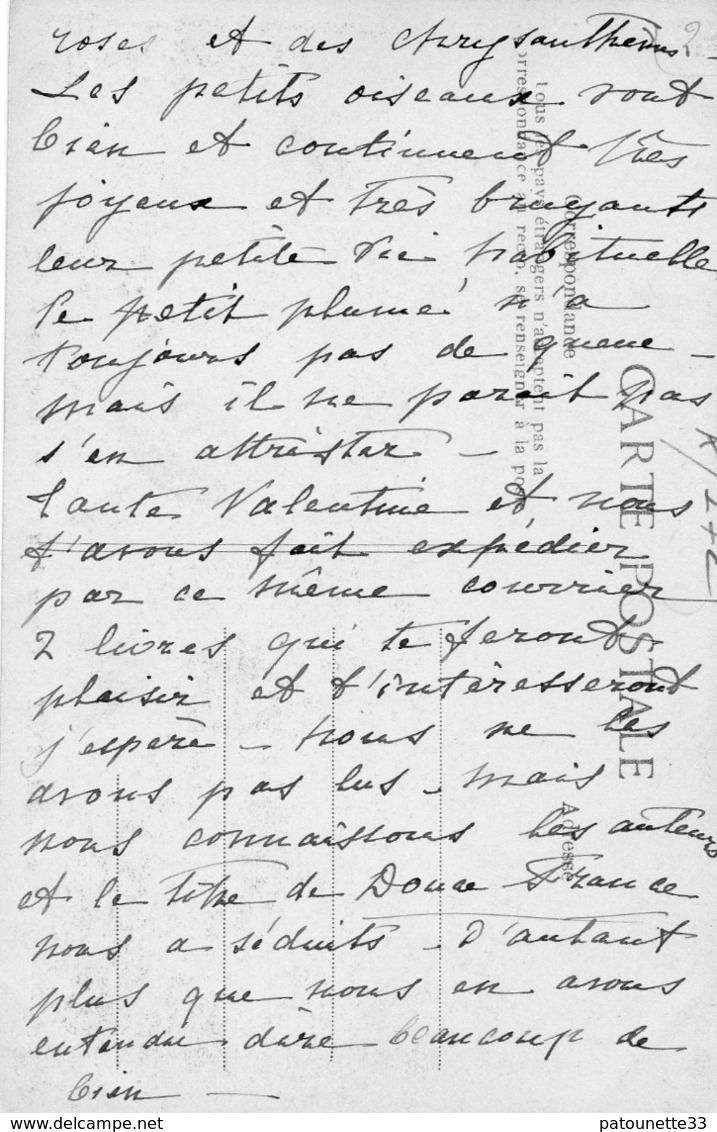 roses et des chrysanthèmes -
Les petits oiseaux vont
bien et continuent très
joyeux et très bruyants
leur petite vie habituelle
Le petit plumé n'a
toujours pas de queue -
mais il ne parait pas
s'en attrister -
tante Valentine et nous
t'avons fait expédier
par ce même courrier
2 livres qui te feront
plaisir et t'intéresseront
j'espère - nous ne les
avons pas lus - mais
nous connaissons les auteurs
et le titre de Douce France
nous a séduits - D'autant
plus que nous en avons
entendu dire beaucoup de
bien -
2
CARTE POSTALE
Correspondance
Tous les pays étrangers n'acceptent pas la
correspondance au recto, se renseigner à la poste
Adresse
patounette33